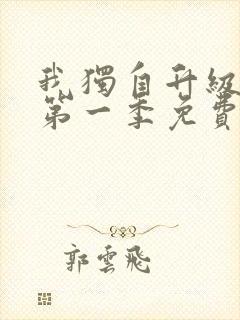 我獨自升級
第一季免費
郭雲飛